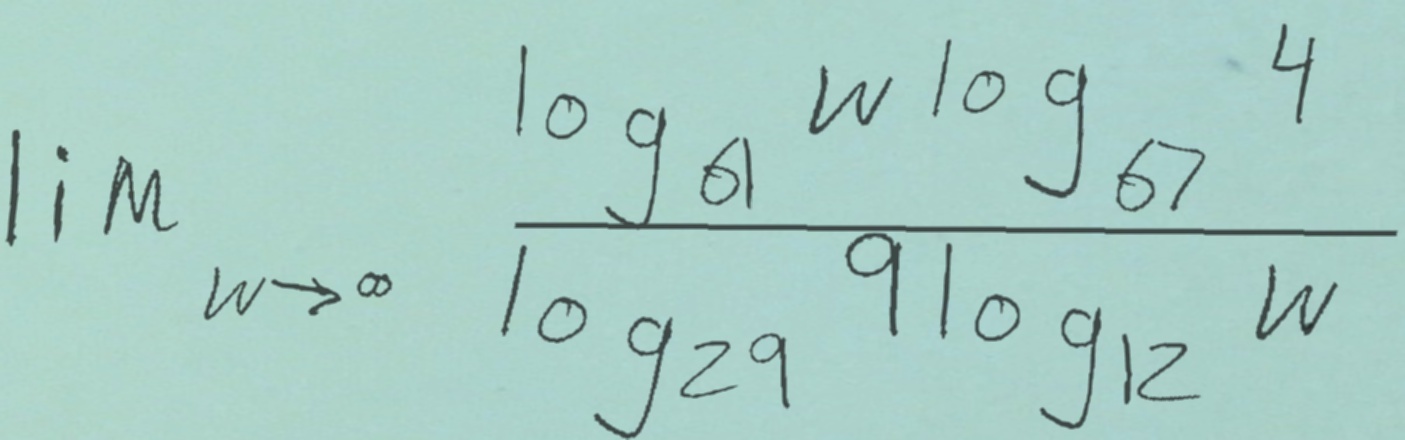 lim_{w→∞} \frac{log_{61} w log_{67} 4}{log_{29} 9 log_{12} w}